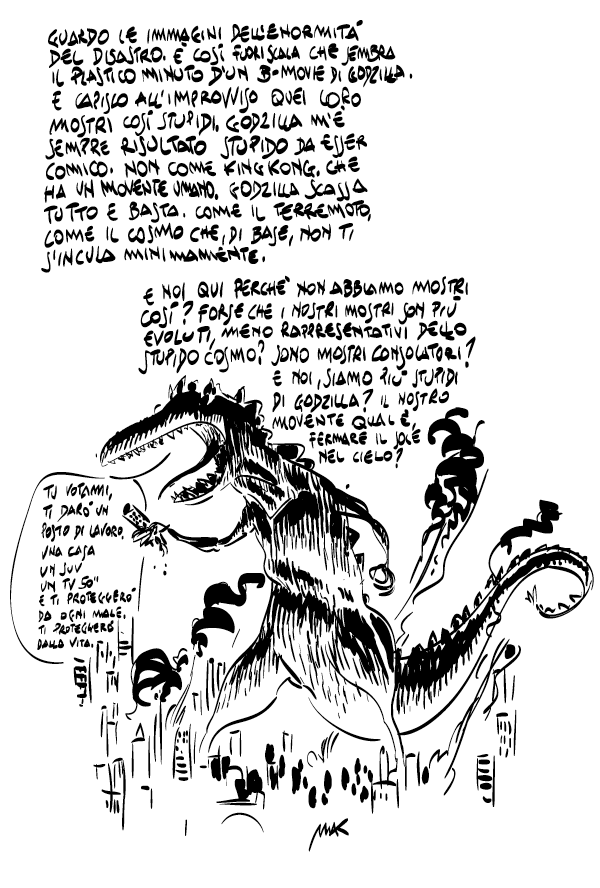 GUARDO LE IMMAGINI DELL'ENORMITÀ
DEL DISASTRO. È COSÌ FUORI SCALA CHE SEMBRA
IL PLASTICO MINUTO D'UN B-MOVIE DI GODZILLA.
E CAPISCO ALL'IMPROVVISO QUEI LORO
MOSTRI COSÌ STUPIDI. GODZILLA M'È
SEMPRE RISULTATO STUPIDO DA ESSER
COMICO. NON COME KING KONG, CHE
HA UN MOVENTE UMANO. GODZILLA SCASSA
TUTTO E BASTA. COME IL TERREMOTO,
COME IL COSMO CHE, DI BASE, NON TI
S'INCULA MINIMAMENTE.
E NOI QUI PERCHÈ NON ABBIAMO MOSTRI
COSÌ? FORSE CHE I NOSTRI MOSTRI SON PIÙ
EVOLUTI, MENO RAPPRESENTATIVI DELLO
STUPIDO COSMO? SONO MOSTRI CONSOLATORI?
E NOI, SIAMO PIÙ STUPIDI
DI GODZILLA? IL NOSTRO
MOVENTE QUAL È,
FERMARE IL SOLE
NEL CIELO?
TU VOTAMI,
TI DARÒ UN
POSTO DI LAVORO,
UNA CASA
UN SUV
UN TV 50"
E TI PROTEGGERÒ
DA OGNI MALE.
TI PROTEGGERÒ
DALLA VITA.
MAK